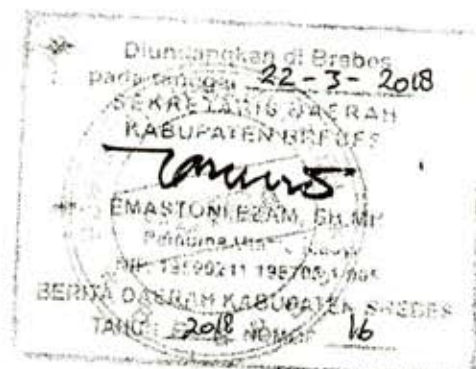 Diundangkan di Brebes
pada tanggal 22-3-2018
SEKRETARIS DAERAH
KABUPATEN BREBES
EMASTONI EZAM, SH.MH
Pembina Utama
NIP. 19590211 198703 1
BERITA DAERAH KABUPATEN BREBES
TAHUN 2018 NOMOR 16